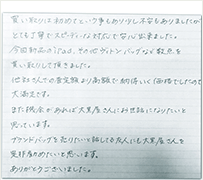 買い取りは初めてという事もあり少し不安もありましたが
とても丁寧でスピーディーな対応で安心出来ました。
今回新品のiPad、その他ヴィトンバッグなど数点を
買い取りして頂きました。
他社さんでの査定額より高額で納得いく価格でしたので
大満足です。
また機会があれば大黒屋さんにお世話になりたいと
思っています。
ブランドバッグを売りたいと話してる友人にも大黒屋さんを
是非薦めたいと思います。
ありがとうございました。